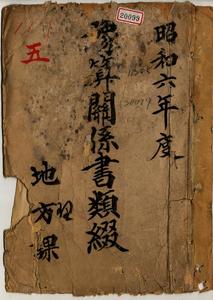 昭和六年度
豫算關係書類綴
地方課
五
20099